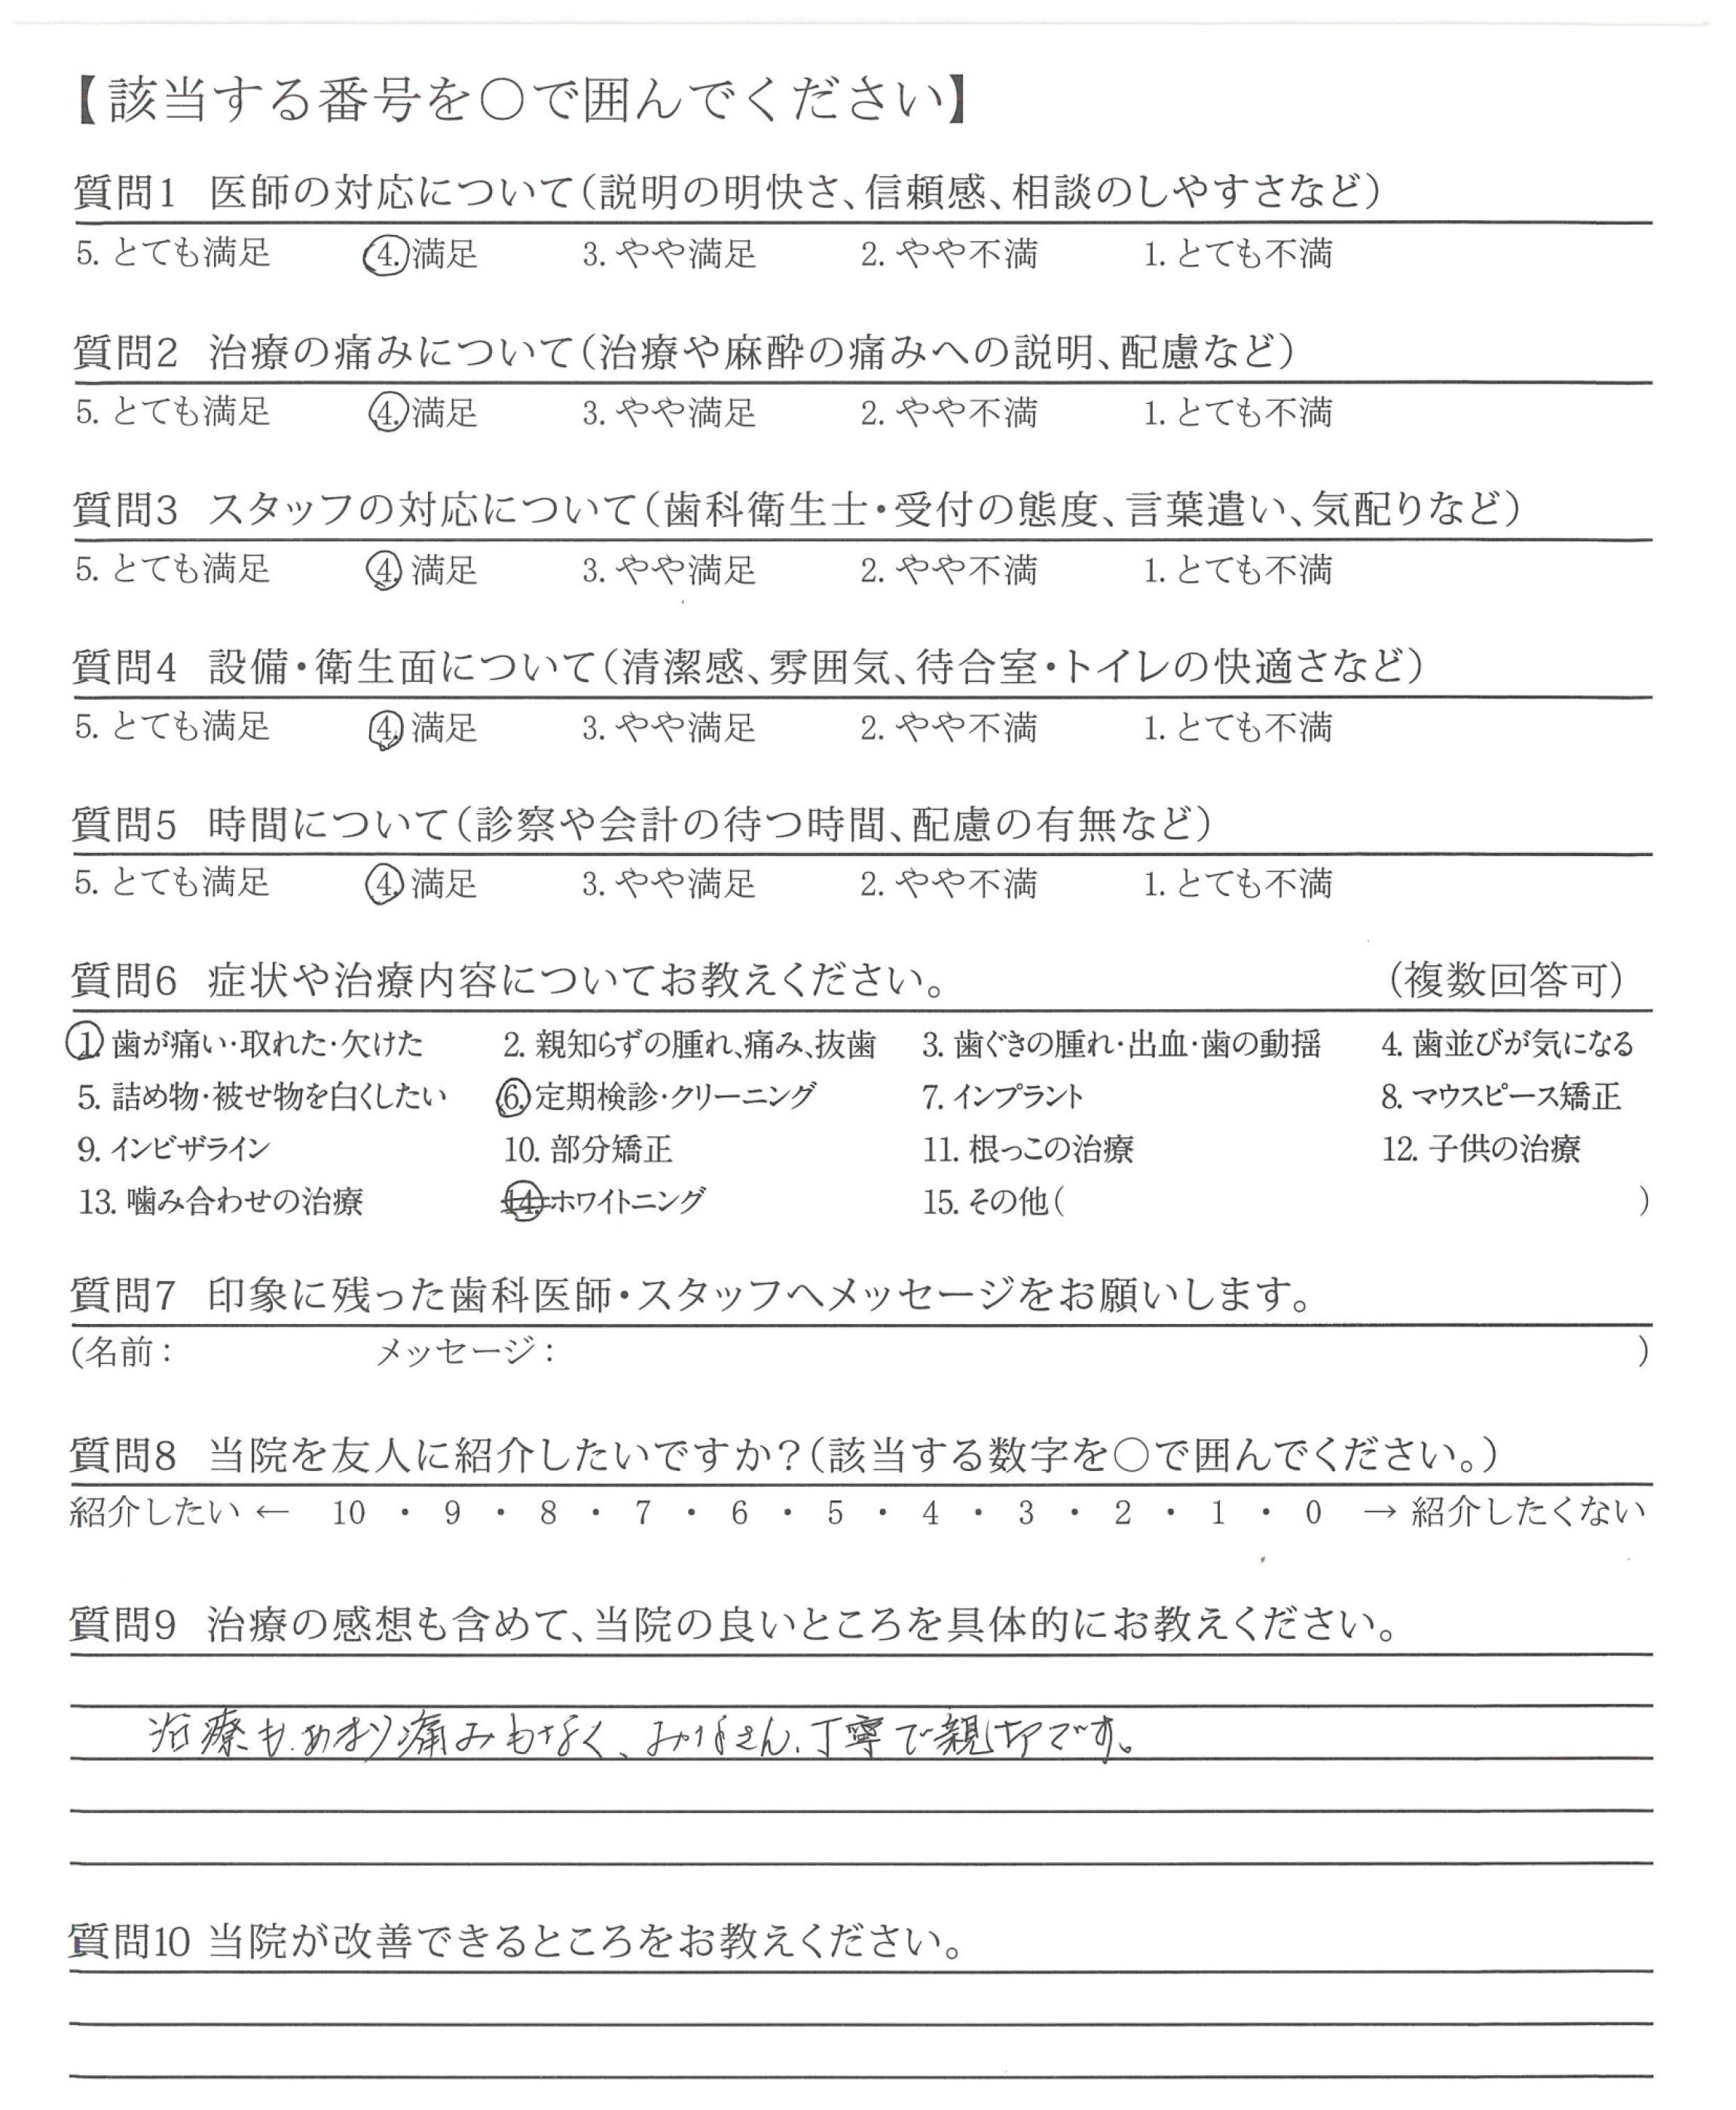 【該当する番号を○で囲んでください】
質問1 医師の対応について(説明の明快さ、信頼感、相談のしやすさなど)
5. とても満足 4. 満足 3. やや満足 2. やや不満 1. とても不満
質問2 治療の痛みについて(治療や麻酔の痛みへの説明、配慮など)
5. とても満足 4. 満足 3. やや満足 2. やや不満 1. とても不満
質問3 スタッフの対応について(歯科衛生士・受付の態度、言葉遣い、気配りなど)
5. とても満足 4. 満足 3. やや満足 2. やや不満 1. とても不満
質問4 設備・衛生面について(清潔感、雰囲気、待合室・トイレの快適さなど)
5. とても満足 4. 満足 3. やや満足 2. やや不満 1. とても不満
質問5 時間について(診察や会計の待つ時間、配慮の有無など)
5. とても満足 4. 満足 3. やや満足 2. やや不満 1. とても不満
質問6 症状や治療内容についてお教えください。 (複数回答可)
1. 歯が痛い・取れた・欠けた 2. 親知らずの腫れ、痛み、抜歯 3. 歯ぐきの腫れ・出血・歯の動揺 4. 歯並びが気になる
5. 詰め物・被せ物を白くしたい 6. 定期検診・クリーニング 7. インプラント 8. マウスピース矯正
9. インビザライン 10. 部分矯正 11. 根っこの治療 12. 子供の治療
13. 噛み合わせの治療 14. ホワイトニング 15. その他( )
質問7 印象に残った歯科医師・スタッフへメッセージをお願いします。
(名前: メッセージ: )
質問8 当院を友人に紹介したいですか?(該当する数字を○で囲んでください。)
紹介したい ← 10 ・ 9 ・ 8 ・ 7 ・ 6 ・ 5 ・ 4 ・ 3 ・ 2 ・ 1 ・ 0 → 紹介したくない
質問9 治療の感想も含めて、当院の良いところを具体的にお教えください。
治療も、あまり痛みもなく、みなさん、丁寧で親切です。
質問10 当院が改善できるところをお教えください。